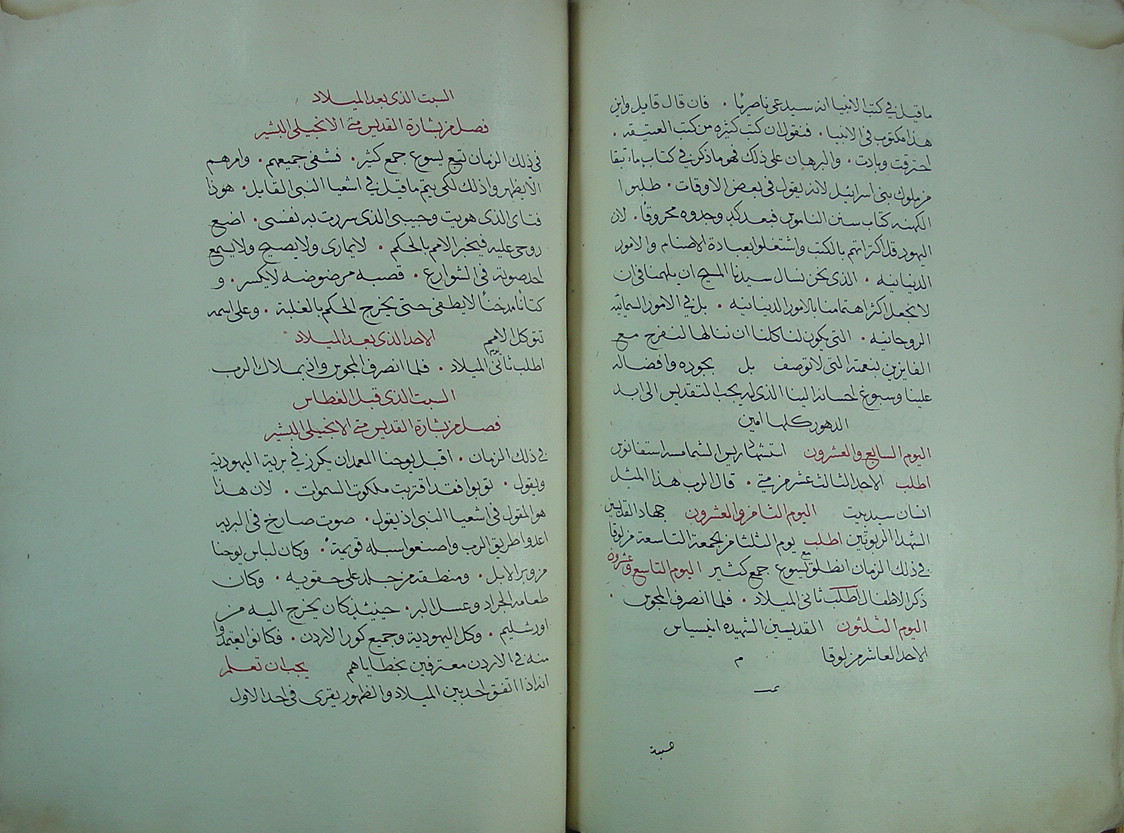 ماقيل في كتب الانبيا انه سيدعى ناصريًا . فان قال قايل واين
هذا مكتوب في الانبيا . فنقول ان كتب كثيره من كتب العتيقه .
احترقت وبادت . والبرهان على ذلك فهو ماذكر في كتاب ماتبقا
من ملوك بني اسراييل لانه يقول في بعض الاوقات . طلبوا
الكهنه كتاب سنن الناموس فبعد كد وجدوه محروقًا . لان
اليهود قد اكثرانهم بالكتب واشتغلو بعبادة الاصنام والامور
الدنيانيه . الذي نحن نسال سيدنا المسيح ان يلهمنا في ان
لانجعل اكثر اهتمامنا بالامور الدنيانيه . بل في الامور السمائيه
الروحانيه . التي يكون لنا كلنا ان ننالها لنفرح مع
الفايزين بنعمته التي لاتوصف بل بجوده وافضاله
علينا وسبوغ احسانه الينا الذي له يجب التقديس الى ابد
الدهور كلها امين
اليوم السابع والعشرون استشهاد ريس الشمامسه استفانوس
اطلب الاحد الثالث عشر من متى . قال الرب هذا المثل
انسان سيد بيت اليوم الثامن والعشرون جهاد القديسين
الشهدا الربوتين اطلب يوم الثلثا من الجمعة التاسعة من لوقا
في ذلك الزمان انطلق يسوع مع جمع كثير اليوم التاسع وعشرون
ذكر الاطفال اطلب ثاني الميلاد . فلما انصرف المجوس .
اليوم الثلثون القديسين الشهيده انيسياس
الاحد العاشر من لوقا م
السبت الذي بعد الميلاد
فصل من بشارة القديس متى الانجيلي البشير
في ذلك الزمان تبع يسوع جمع كثير . فشفى جميعهم . وامرهم
الا يظهروا ذلك لكي يتم ماقيل في اشعيا النبي القايل . هوذا
فتاي الذي هويت وحبيبي الذي سررت به نفسي . اضع
روحي عليه فيخبر الامم بالحكم . لايماري ولايصيح ولايسمع
احد صوته في الشوارع . قصبه مرضوضه لايكسر . و
كتانًا مدخنًا لايطفي حتى يخرج الحكم بالغلبة . وعلى اسمه
تتوكل الامم الاحد الذي بعد الميلاد
اطلب ثاني يوم الميلاد . فلما انصرف المجوس واذ بملاك الرب
السبت الذي قبل الغطاس
فصل من بشارة القديس متى الانجيلي البشير
في ذلك الزمان . اقبل يوحنا المعمدان يكرز في برية اليهودية
ويقول . توبوا فقد اقتربت ملكوت السموات . لان هذا
هو المقول في اشعيا النبي اذ يقول . صوت صارخ في البريه
اعدوا طريق الرب واصنعوا سبله قويمة . وكان لباس يوحنا
من وبر الابل . ومنطقة من جلد على حقويه . وكان
طعامه الجراد وعسل البر . حينيذ كان يخرج اليه من
اورشليم . وكل اليهودية وجميع كور الاردن . فكانوا يعتمدوا
منه في الاردن معترفين بخطاياهم يجب ان تعلم
انه اذا اتفق احد بين الميلاد والظهور يقرى في احد الاول